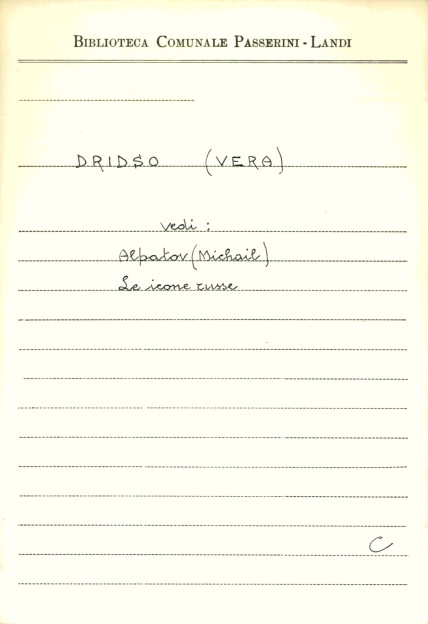 BIBLIOTECA COMUNALE PASSERINI - LANDI
DRIDSO (VERA)
vedi :
Alpatov (Michail)
Le icone russe
C